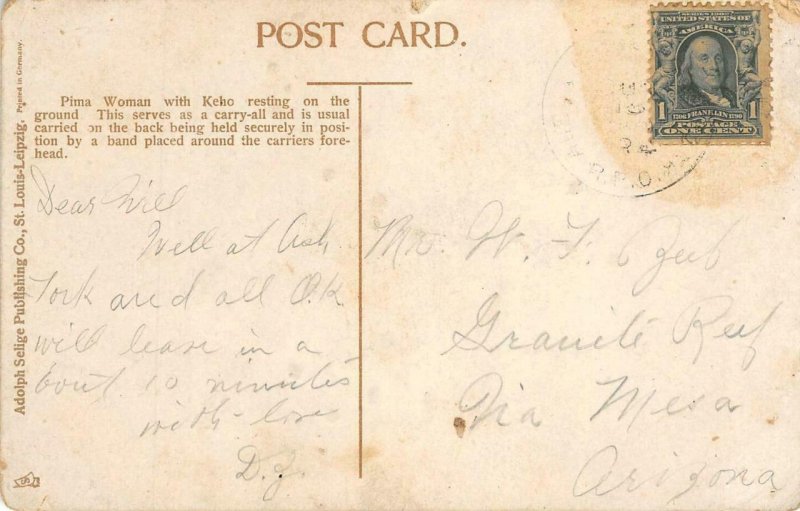 POST CARD.
Pima Woman with Keho resting on the
ground This serves as a carry-all and is usual
carried on the back being held securely in posi-
tion by a band placed around the carriers fore-
head.
Adolph Selige Publishing Co., St. Louis-Leipzig. Printed in Germany.
Dear Will
Well at Ash
Fork and all O.K
will leave in a
bout 10 minutes
with love
D.Z.
Mr. W. F.
Granite Reef
Via Mesa
Arizona
SERIES 1902
UNITED STATES OF
AMERICA
1 1706 FRANKLIN 1790 1
POSTAGE
ONE CENT
R.P.O.